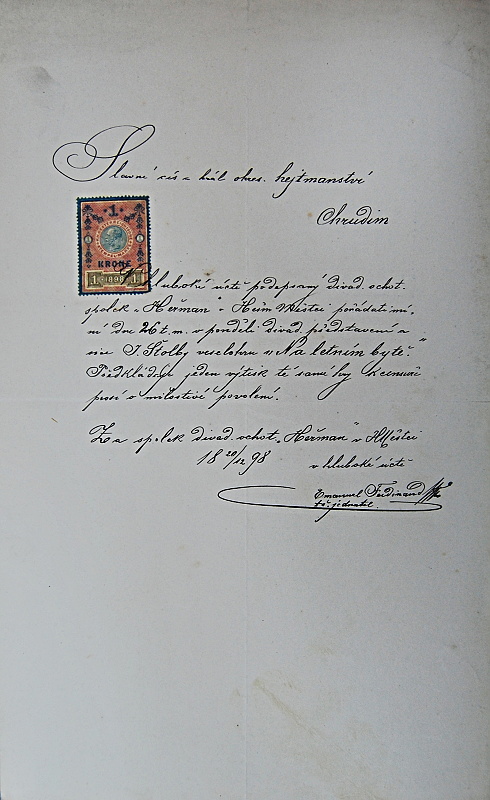 Slavné cís a král okres. hejtmanství
Chrudim
1
KRONE
1 1898 1
V hluboké úctě podepsaný divad. ochot.
spolek „Heřman" v Heřm Městci pořádati mí,
ní dne 26 t. m. v pondělí divad. představení a
sice J. Štolby veselohru „Na letním bytě."
Předkládaje jeden výtisk té samé hry k censuře
prosí o milostivé povolení.
Za spolek divad. ochot. „Heřman" v H Městci
18 20/12 98 v hluboké úctě
Emanuel Ferdinand
t. č. jednatel.